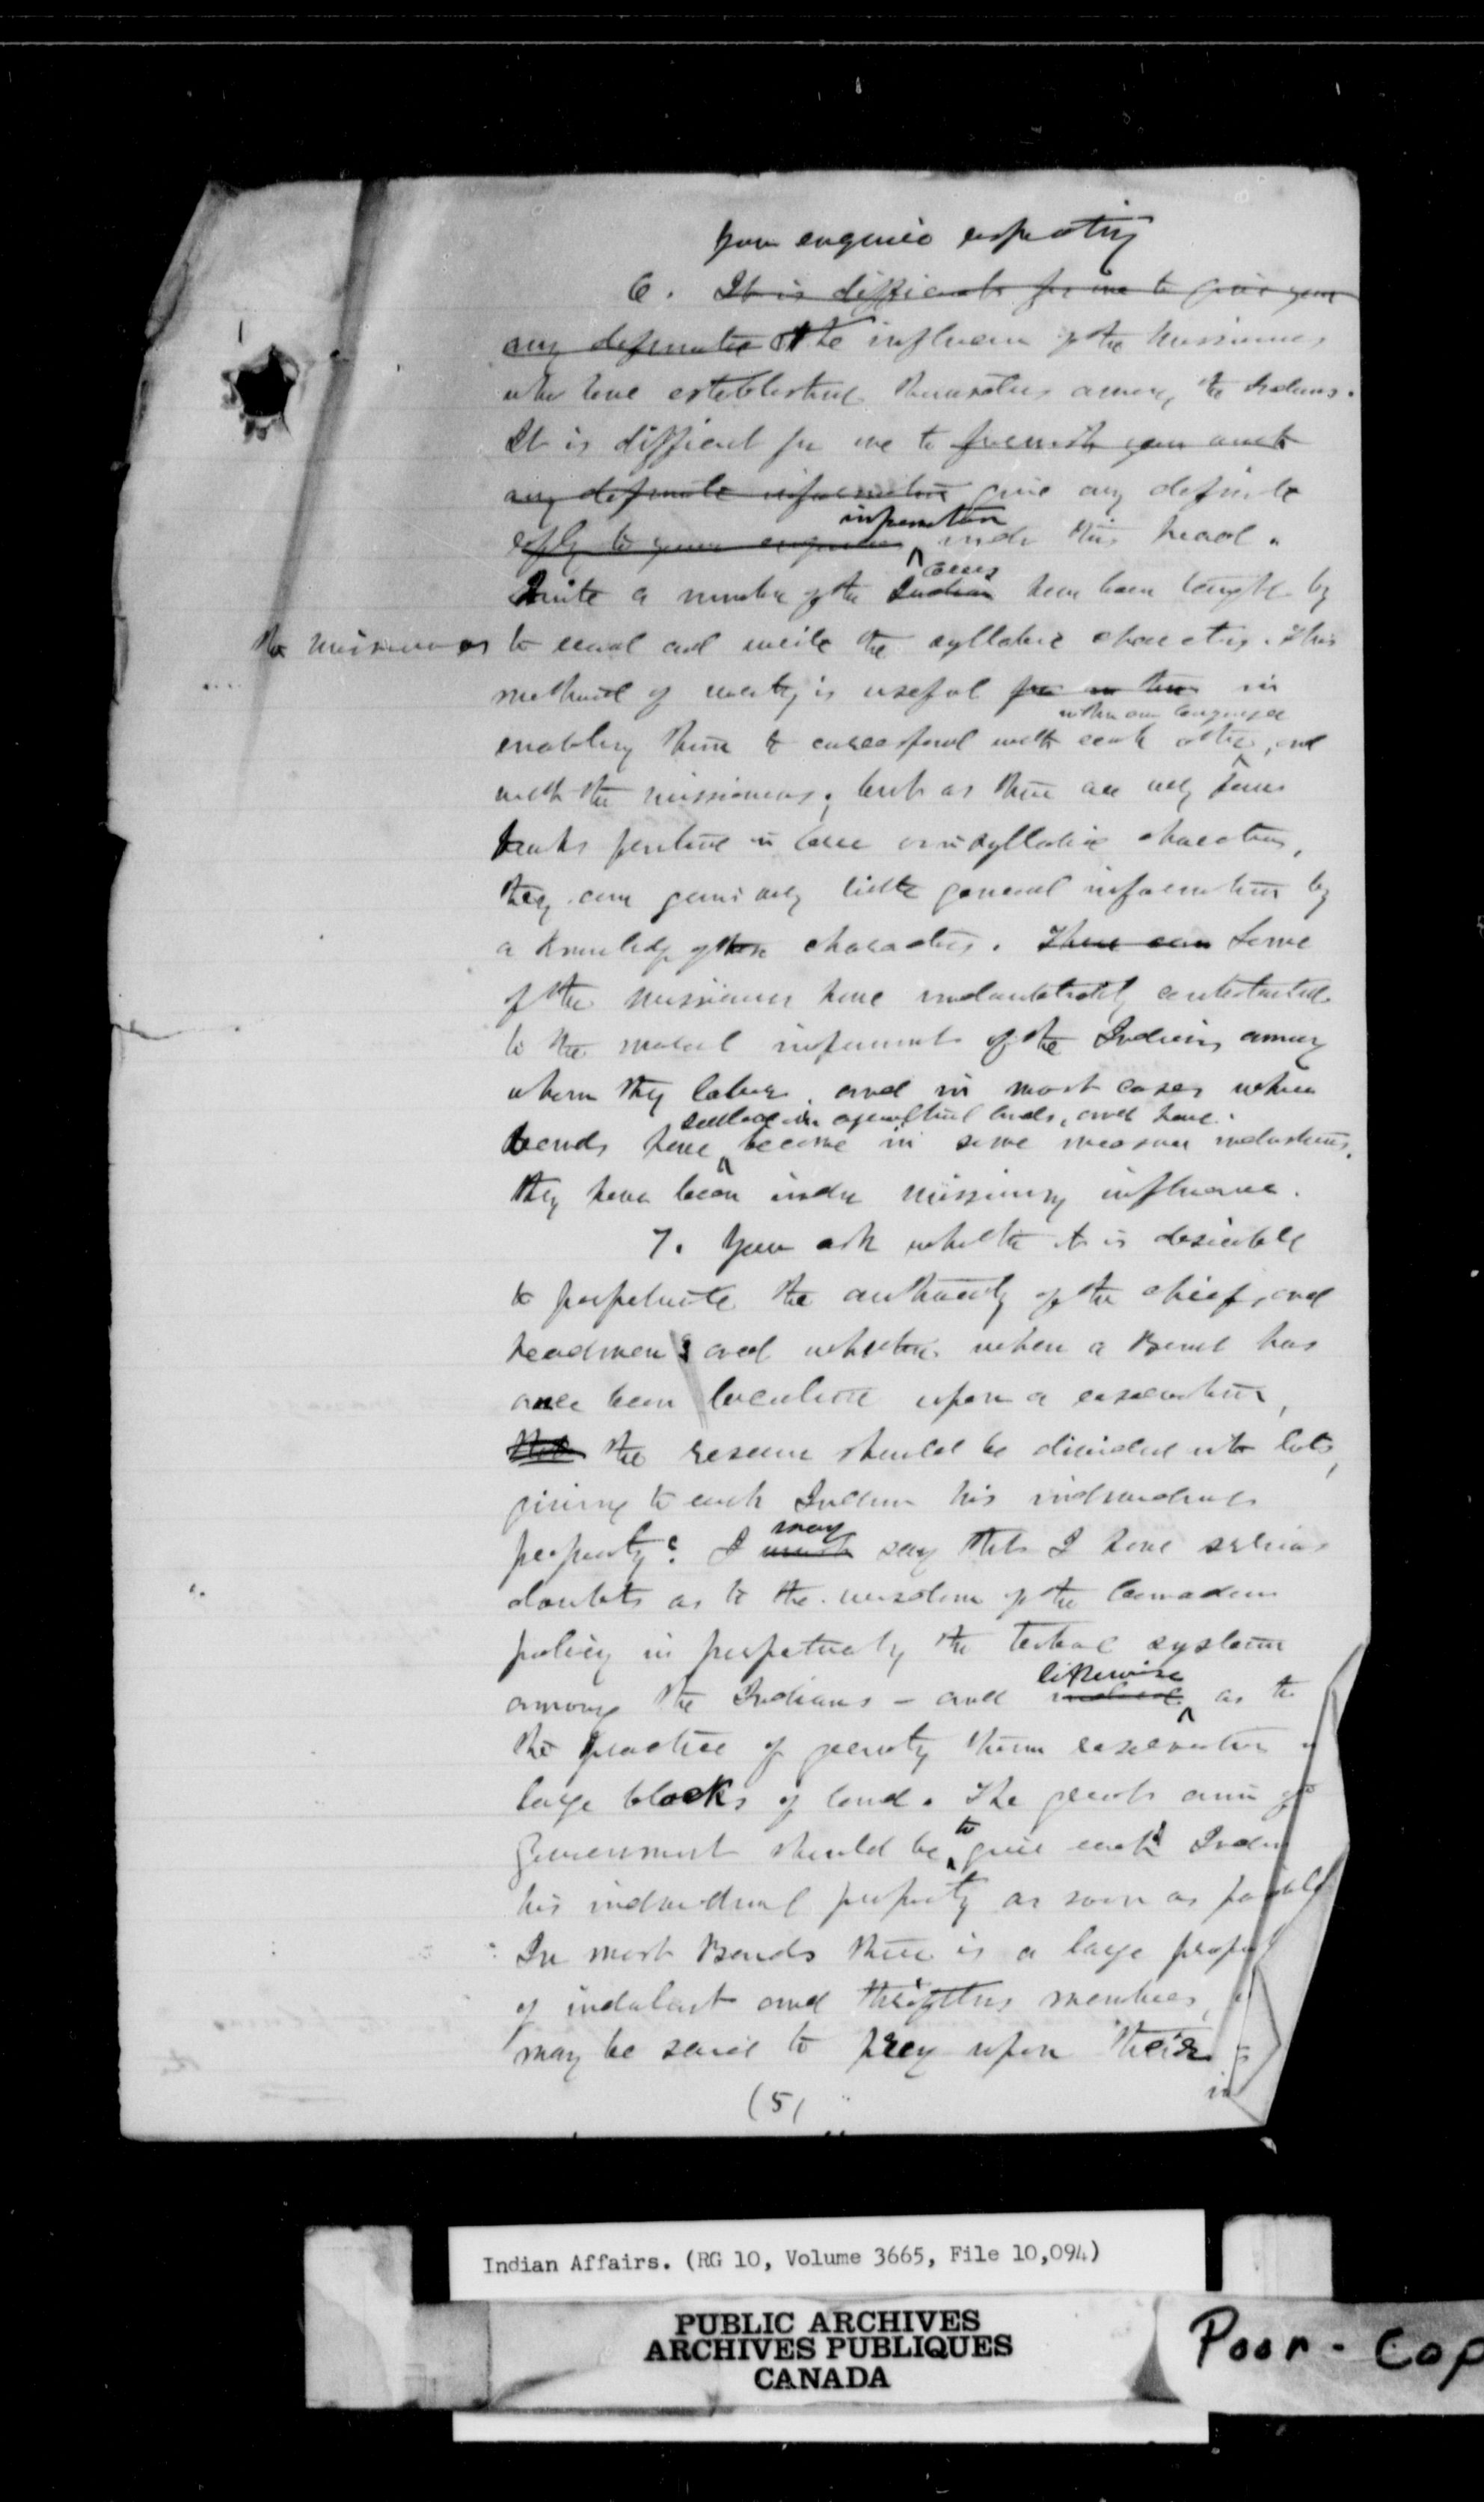 Your enquiries respecting
6. It is difficult for me to give you
any definite The influence of the Missionaries
who have established themselves among the Indians.
It is difficult for me to furnish you with
any definite information give any definite
reply to your enquiries information under this head.
Quite a number of the Indian Crees have been taught by
the missionaries to read and write the syllabic characters. This
method of writing is useful in
enabling them to correspond with each other in their own language, and
with the missionaries; but as there are very few
books printed in Cree or in syllabic characters,
they can gain very little general information by
a knowledge of these characters. There can Some
of the missionaries have undoubtedly contributed
to the moral improvement of the Indians among
whom they labor, and in most cases where
bands have settled on agricultural lands, and have become in some measure industrious,
they have been under missionary influence.
7. You ask whether it is desirable
to perpetuate the authority of the chiefs and
headmen; and whether when a Band has
once been located upon a reservation,
that the reserve should be divided into lots,
giving to each Indian his individual
property? I must may say that I have serious
doubts as to the wisdom of the Canadian
policy in perpetuating the tribal system
among the Indians - and indeed likewise as to
the practice of granting them reservations in
large blocks of land. The great aim of
Government should be to give each Indian
his individual property as soon as possible
In most Bands there is a large
of indolent and thriftless members,
may be said to prey upon their
in
(5)
Indian Affairs. (RG 10, Volume 3665, File 10,094)
PUBLIC ARCHIVES
ARCHIVES PUBLIQUES
CANADA
Poor - Cop